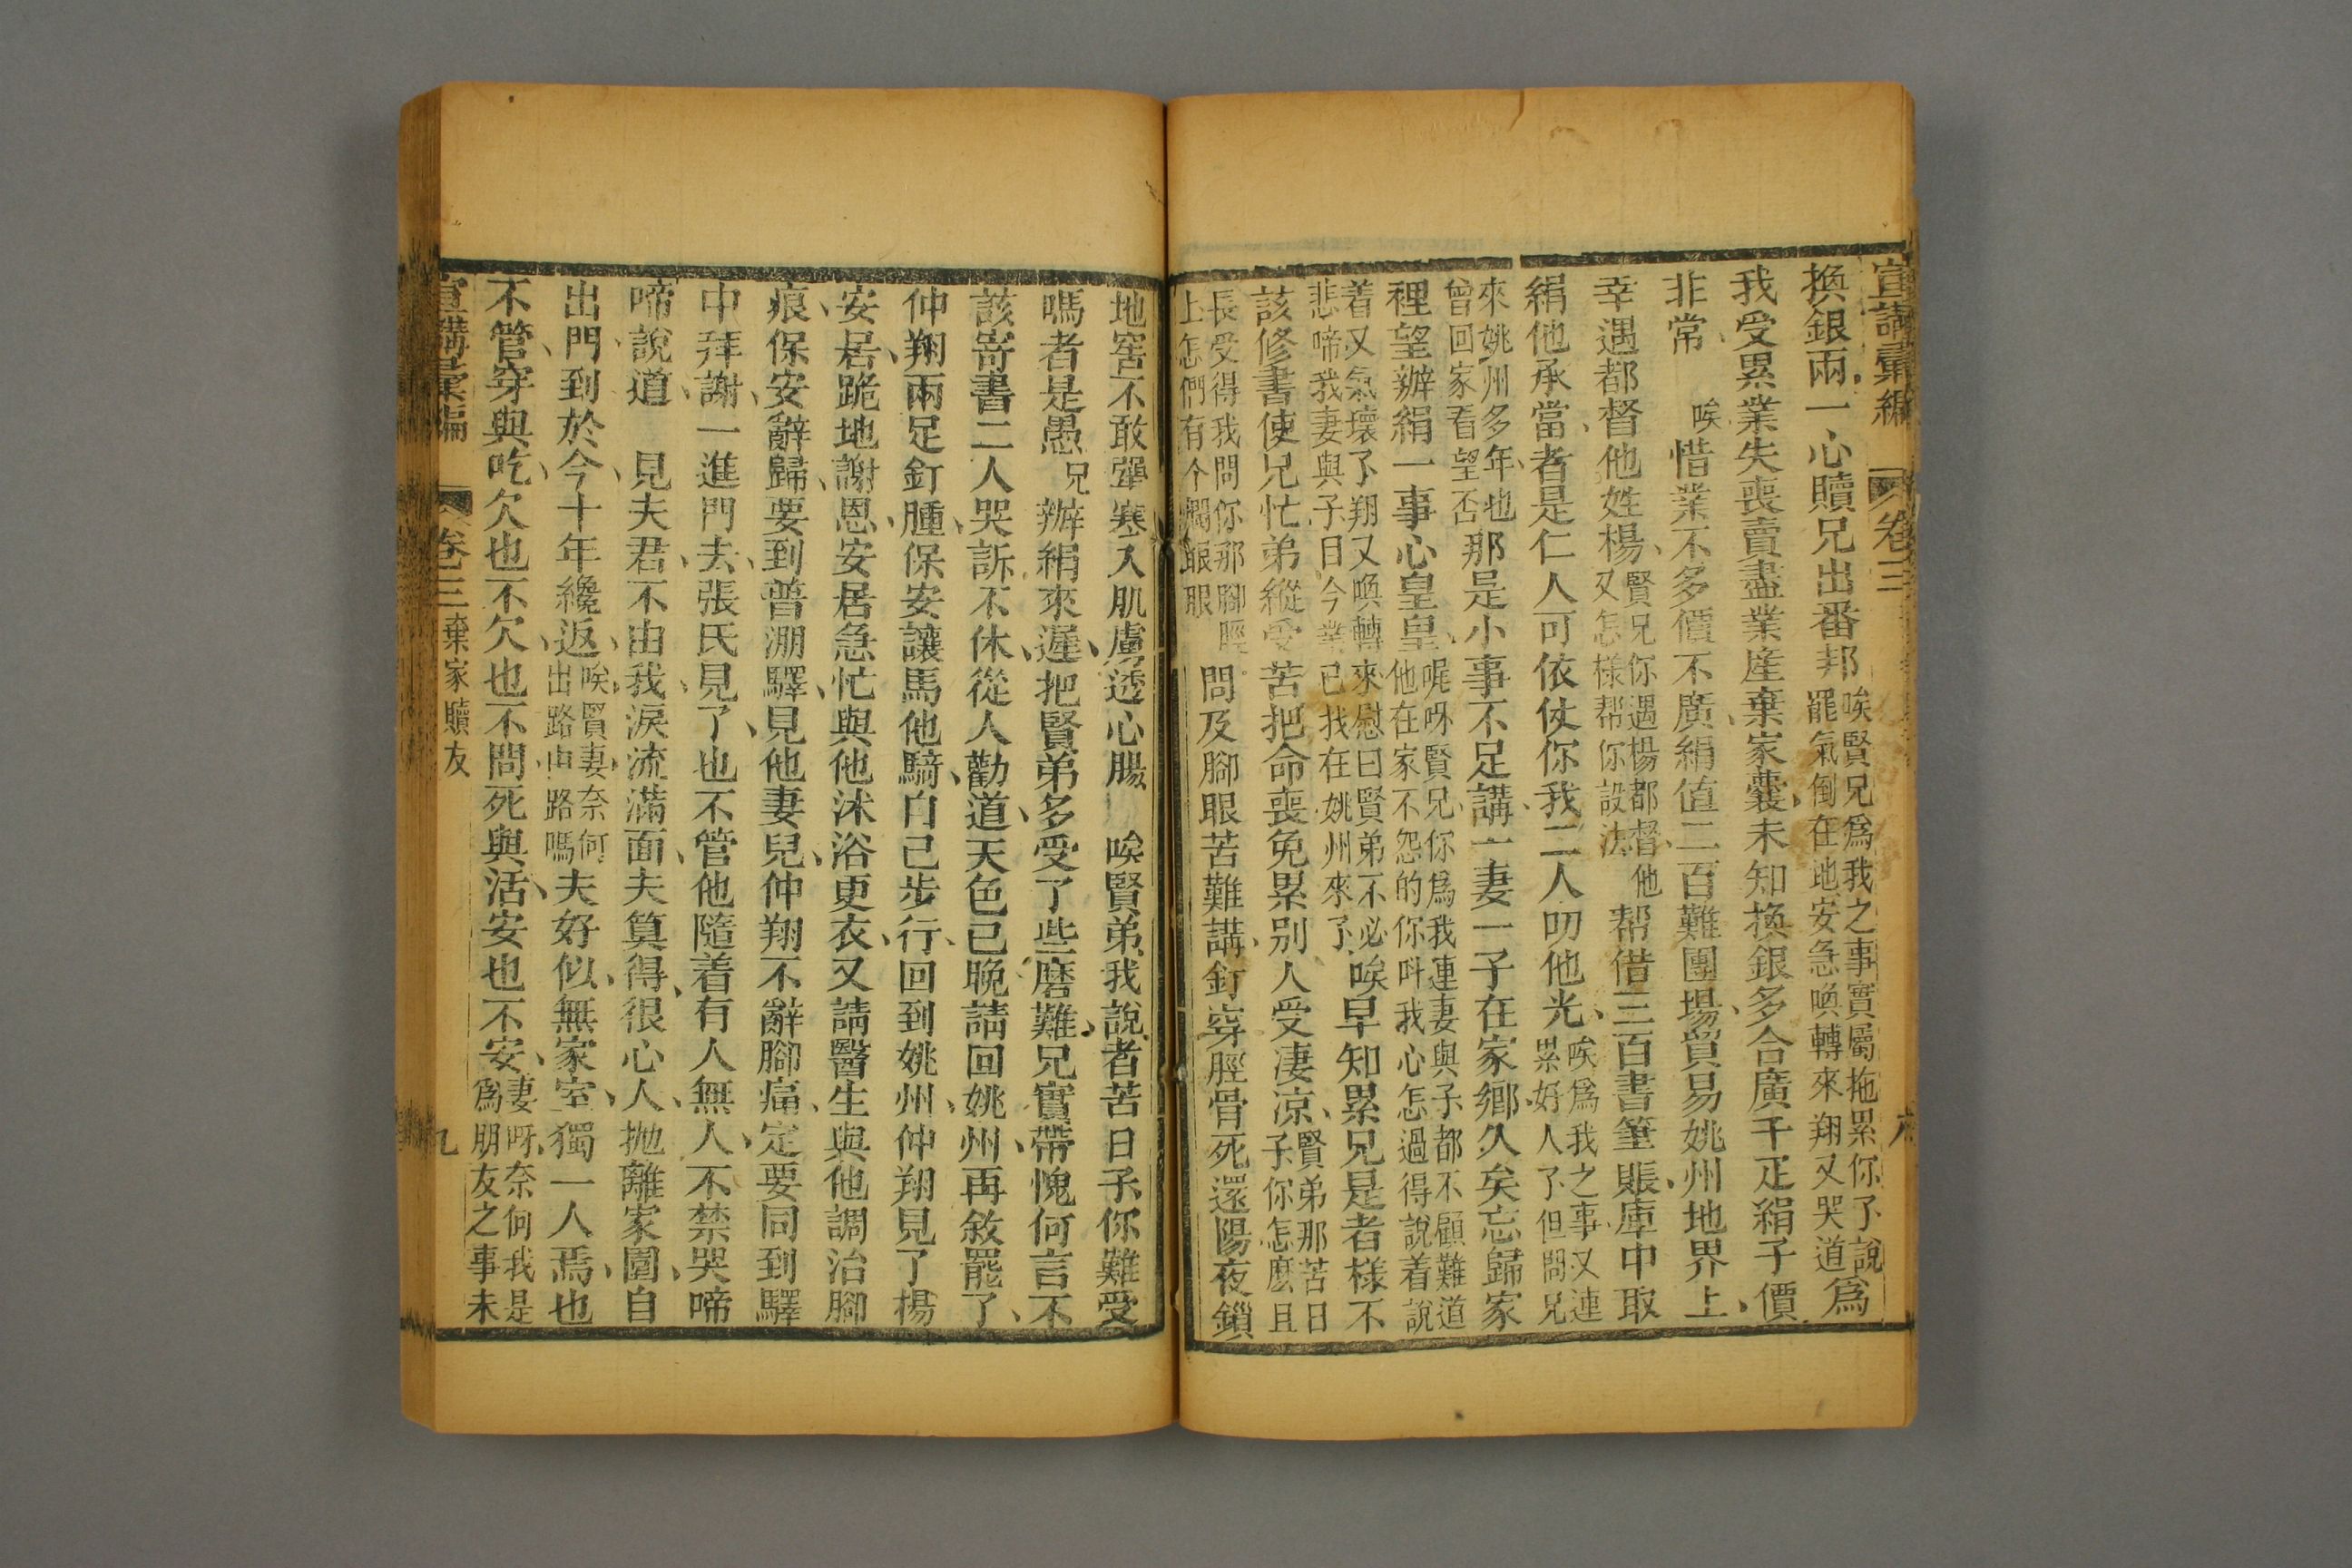 宣講彙編 卷三 八
換銀兩一心贖兄出番邦 唉賢兄爲我之事實屬拖累你了說
罷氣倒在地安急喚轉來翔又哭道 爲
我受累業失喪賣盡業産棄家囊未知換銀多合廣千疋絹子價
非常 唉惜業不多價不廣絹值二百難團場貿易姚州地界上
幸遇都督他姓楊 賢兄你遇楊都督他
又怎樣帮你設法 帮借三百書筆賬庫中取
絹他承當者是仁人可依仗你我二人叨他光 唉爲我之事又連
累好人了但問兄
來姚州多年也
曾回家看望否 那是小事不足講一妻一子在家鄉久矣忘歸家
裡望辦絹一事心皇皇 呢呀賢兄你爲我連妻與子都不顧難道
他在家不怨的你叫我心怎過得說着說
着又氣壞了翔又喚轉來慰曰賢弟不必
悲啼我妻與子日今業已找在姚州來了 唉早知累兄是者樣不
該修書使兄忙弟縱受苦把命喪免累別人受凄凉 賢弟那苦日
子你怎麽且
長受得我問你那腳脛
上怎們有个爛眼眼 問及腳眼苦難講釘穿脛骨死還陽夜鎖
地窖不敢犟寒入肌膚透心腸 唉賢弟我說者苦日子你難受
嗎者是愚兄辦絹來遲把賢弟多受了些磨難兄實帶愧何言不
該寄書二人哭訴不休從人勸道天色已晚請回姚州再敘罷了
仲翔兩足釘腫保安讓馬他騎自己步行回到姚州仲翔見了楊
安居跪地謝恩安居急忙與他沐浴更衣又請醫生與他調治腳
痕保安辭歸要到普淜驛見他妻兒仲翔不辭腳痛定要同到驛
中拜謝一進門去張氏見了也不管他隨着有人無人不禁哭啼
啼說道 見夫君不由我淚流滿面夫算得很心人拋離家園自
出門到於今十年纔返 唉賢妻奈何
出路由路嗎 夫好似無家室獨一人焉也
不管穿與吃欠也不欠也不問死與活安也不安 妻呀奈何我是
爲朋友之事未
宣講彙編 卷三 棄家贖友 九